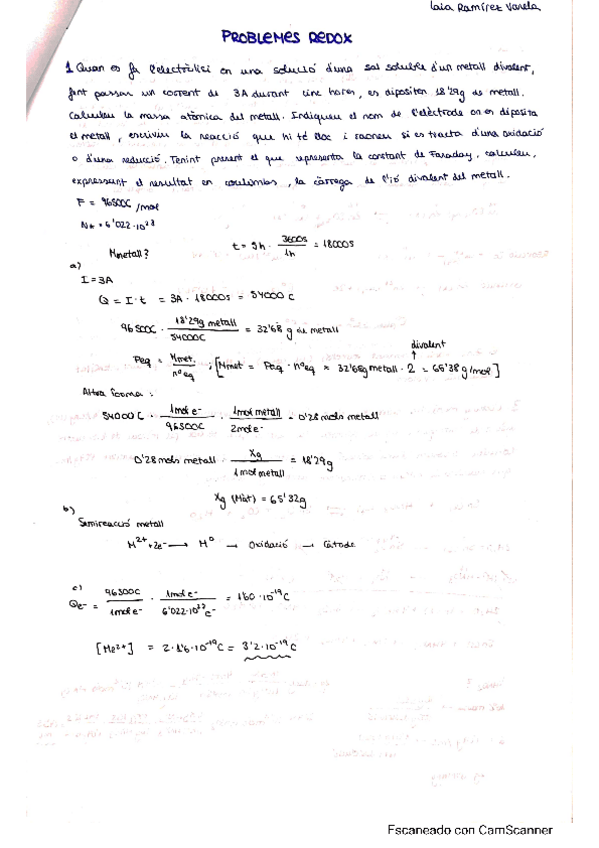 Laia Ramírez Varela
PROBLEMES REDOX
1. Quan es fa l'electròlisi en una solució d'una sal soluble d'un metall divalent,
fent passar un corrent de 3A durant cinc hores, es dipositen 18'29g de metall.
Calculeu la massa atòmica del metall. Indiqueu el nom de l'elèctrode on es diposita
el metall, escriviu la reacció que hi té lloc i raoneu si es tracta d'una oxidació
o d'una reducció. Tenint present el que representa la constant de Faraday, calculeu,
expressant el resultat en coulombs, la càrrega de l'ió divalent del metall.
F = 96500C /mol
NA = 6'022·10²³
Mmetall? t = 5h · 3600s / 1h = 18000s
a)
I = 3A
Q = I · t = 3A · 18000s = 54000 C
96500C · 18'29g metall / 54000C = 32'68 g de metall
divalent
Peq = Mmet. / nº eq ; [Mmet = Peq · nº eq = 32'68g metall · 2 = 65'38 g/mol]
Altra forma :
54000 C · 1mol e- / 96500C · 1mol metall / 2mol e- = 0'28 mols metall
0'28 mols metall · Xg / 1 mol metall = 18'29g
Xg (Mat) = 65'32g
b)
Semireacció metall
M²⁺+2e- → M⁰ → Oxidació → Càtode
c)
Qe- = 96500C / 1mol e- · 1mol e- / 6'022·10²³ e- = 1'60 · 10⁻¹⁹ C
[Me²⁺] = 2 · 1'6·10⁻¹⁹ C = 3'2·10⁻¹⁹ C
Escaneado con CamScanner